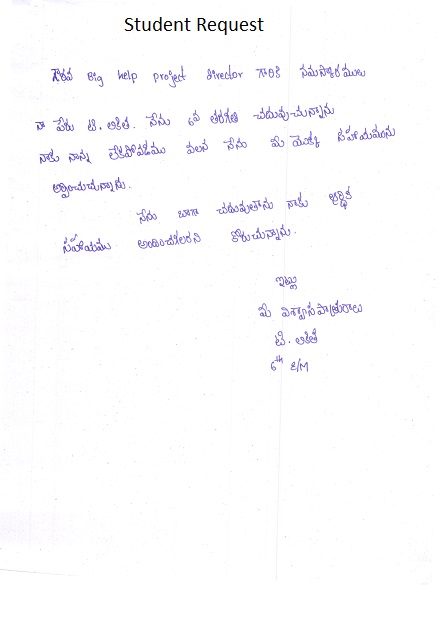 Student Request
గౌరవ Big help project director గారికి నమస్కారములు
నా పేరు టి. అకిత. నేను 6వ తరగతి చదువుచున్నాను
నాకు నాన్న లేకపోవడము వలన నేను మీ మొక్క సహాయమును
అర్థించుచున్నాను.
నేను బాగా చదువుతాను నాకు ఆర్థిక
సహాయము అందించగలరని కోరుచున్నాను.
ఇట్లు
మీ విశ్వాసపాత్రురాలు
టి. అకిత
6th E/M